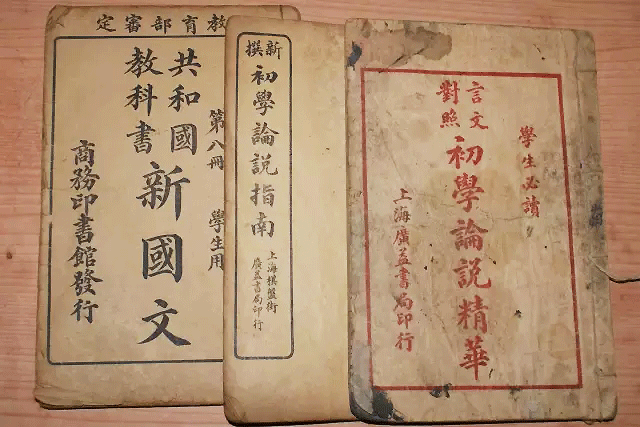 教育部審定
第八冊 學生用
共和國
教科書
新國文
商務印書館發行
新撰
初學論說指南
上海棋盤街
廣益書局印行
學生必讀
言文
對照
初學論說精華
上海廣益書局印行